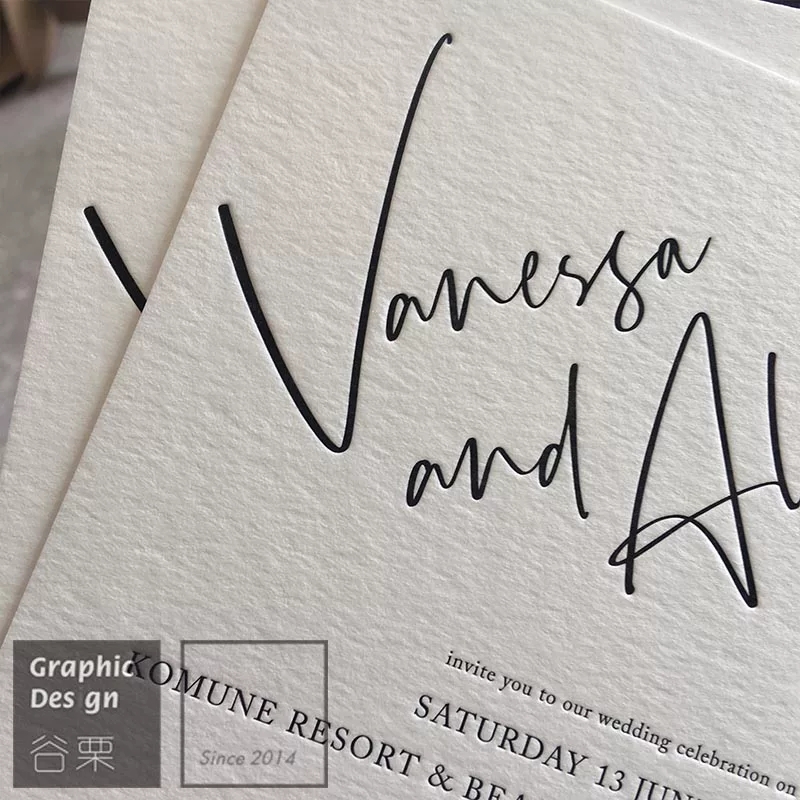 Vanessa
and Al
invite you to our wedding celebration on
SATURDAY 13 JUN
KOMUNE RESORT & BEA
Graphic
Des gn
谷栗
Since 2014